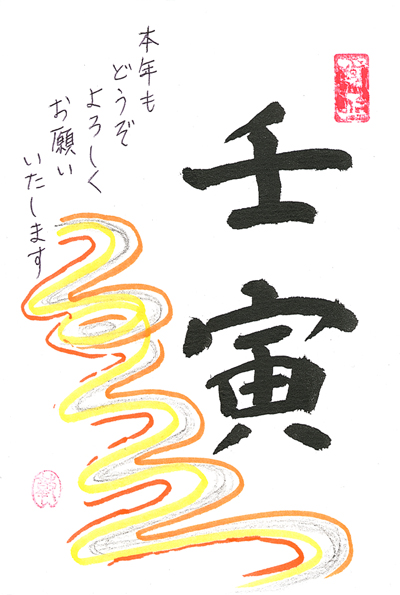 賀正
壬寅
本年も
どうぞ
よろしく
お願い
いたします